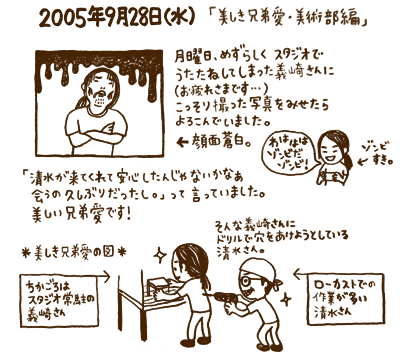 2005年9月28日(水)「美しき兄弟愛・美術部編」
月曜日、めずらしくスタジオで
うたたねしてしまった義崎さんに
(お疲れさまです…)
こっそり撮った写真をみせたら
よろこんでいました。
←顔面蒼白。
わははは
ゾンビだ
ゾンビ!
ゾンビ
すき。
「清水が来てくれて安心したんじゃないかなぁ
会うの久しぶりだったし。」って言っていました。
美しい兄弟愛です!
*美しき兄弟愛の図*
そんな義崎さんに
ドリルで穴をあけようとしている
清水さん。
ちかごろは
スタジオ常駐の
義崎さん
ローカストでの
作業が多い
清水さん